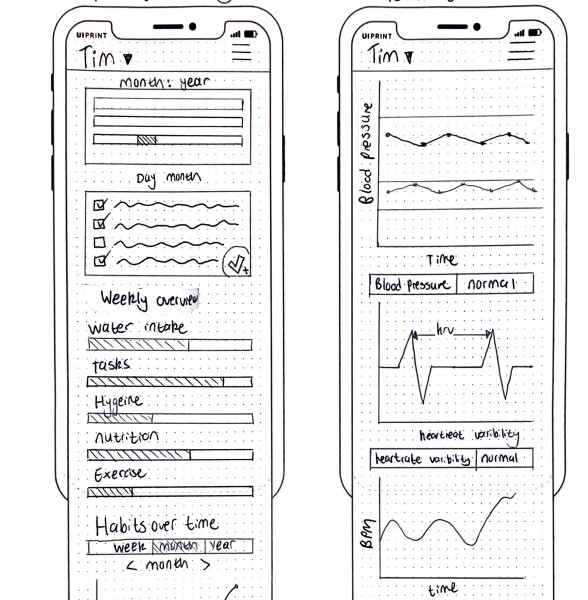 UIPRINT
Tim
month: year
Day month
Weekly overview
water intake
tasks
Hygeine
nutrition
Exercise
Habits over time
week month year
< month >
UIPRINT
Tim
Blood pressure
Time
Blood pressure normal
hrv
heartreat varibility
heartrate varibility normal
BPM
time